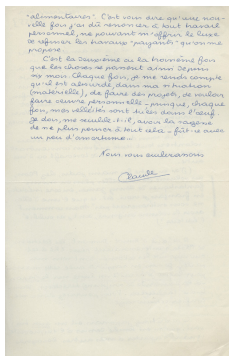 "alimentaires". C'est vous dire qu'une nou-
velle fois j'ai dû renoncer à tout travail
personnel, ne pouvant m'offrir le luxe
de refuser les travaux "payants" qu'on me
propose.
C'est la deuxième ou la troisième fois
que les choses se passent ainsi depuis
six mois. Chaque fois, je me rends compte
qu'il est absurde, dans ma situation
(matérielle), de faire des projets, de vouloir
faire oeuvre personnelle - puisque, chaque
fois, mes velléités sont tuées dans l'oeuf.
Je dois, me semble-t-il, avoir la sagesse
de ne plus penser à tout cela - fût-ce avec
un peu d'amertume...
Nous vous embrassons
Claude